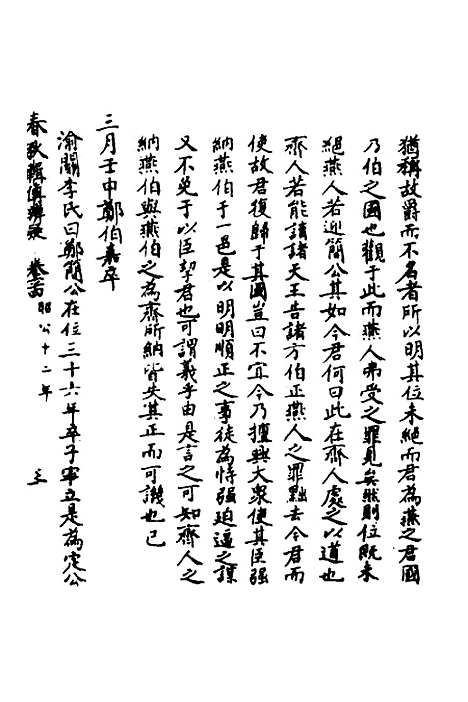 猶稱故爵而不名者所以明其位未絕而君為燕之君國
乃伯之國也觀于此而燕人弗受之罪見矣然則位既未
絕燕人若迎簡公其如今君何曰此在齊人處之以道也
齊人若能請諸天王告諸方伯正燕人之罪黜去今君而
使故君復歸于其國豈曰不宜今乃擅興大衆使其臣强
納燕伯于一邑是以明明順正之事徒為恃强迫逼之謀
又不免于以臣挈君也可謂義乎由是言之可知齊人之
納燕伯與燕伯之為齊所納皆失其正而可譏也已
三月壬申鄭伯嘉卒
渝關李氏曰鄭簡公在位三十六年卒子寧立是為定公
春秋輯傳辨疑 卷 昭公十二年